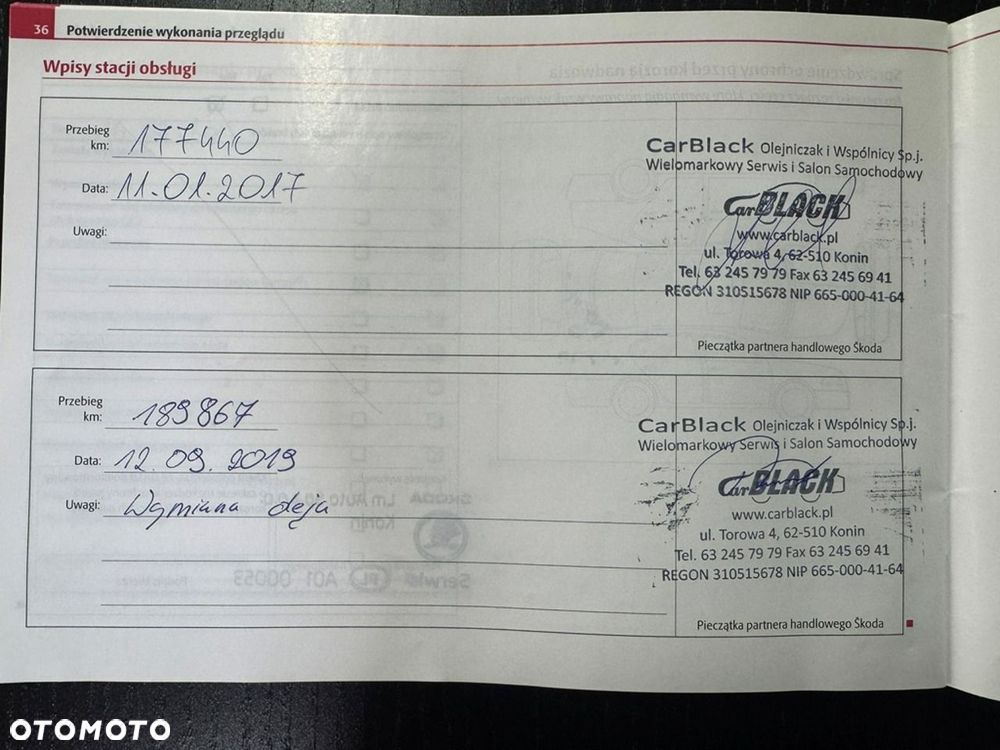 36 Potwierdzenie wykonania przeglądu
Wpisy stacji obsługi
Przebieg
km: 177440
Data: 11.01.2017
Uwagi:
CarBlack Olejniczak i Wspólnicy Sp.j.
Wielomarkowy Serwis i Salon Samochodowy
CarBLACK
www.carblack.pl
ul. Torowa 4, 62-510 Konin
Tel. 63 245 79 79 Fax 63 245 69 41
REGON 310515678 NIP 665-000-41-64
Pieczątka partnera handlowego Škoda
Przebieg
km: 189867
Data: 12.09.2019
Uwagi: Wymiana oleju
CarBlack Olejniczak i Wspólnicy Sp.j.
Wielomarkowy Serwis i Salon Samochodowy
CarBLACK
www.carblack.pl
ul. Torowa 4, 62-510 Konin
Tel. 63 245 79 79 Fax 63 245 69 41
REGON 310515678 NIP 665-000-41-64
Pieczątka partnera handlowego Škoda
OTOMOTO